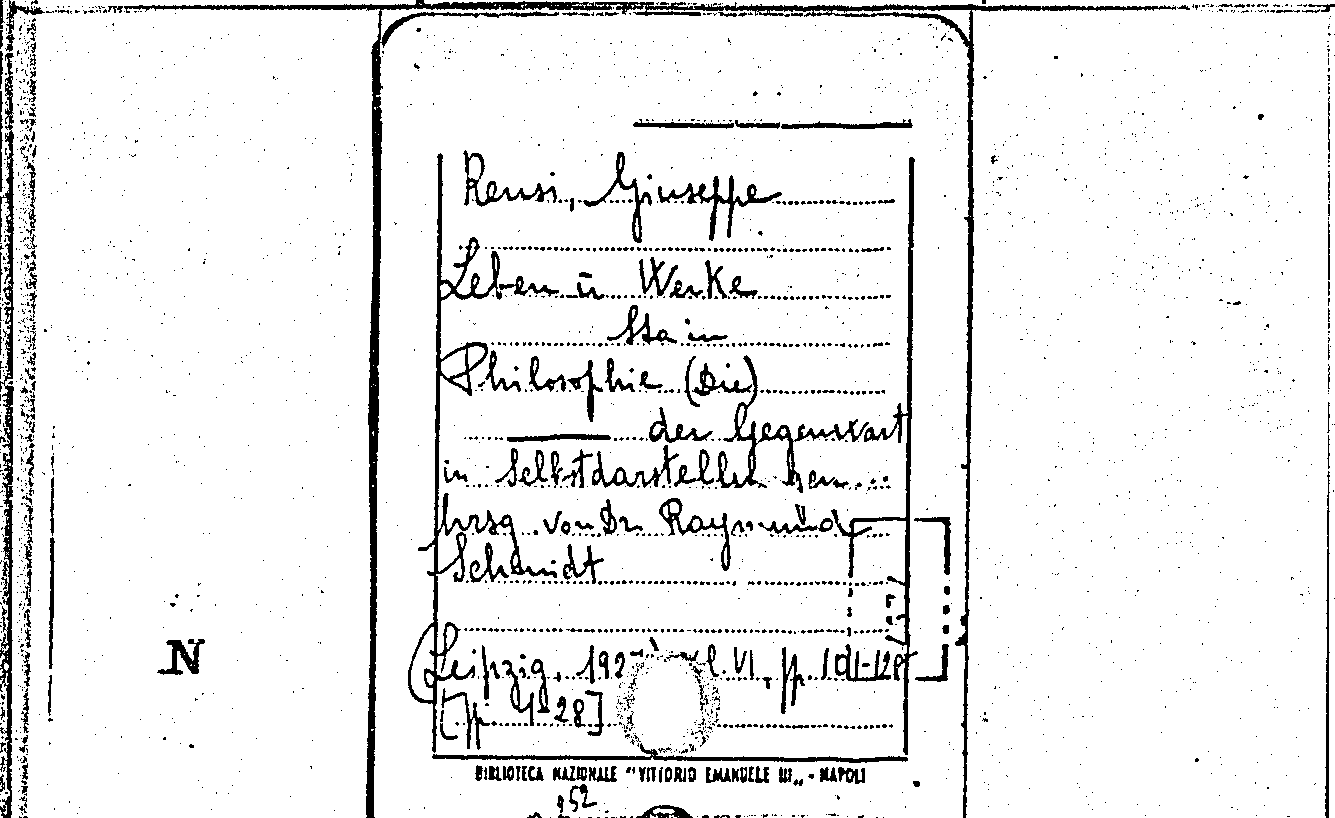 Rensi, Giuseppe
Leben ū Werke
Sta in
Philosophie (Die)
der Gegenwart
in Selbstdarstellungen...
hrsg. von Dr. Raymŭnd
Schmidt
(Leipzig, 1927, vol. VI, pp. 101-128
[pp. 1-28]
N
BIBLIOTECA NAZIONALE "VITTORIO EMANUELE III„ - NAPOLI
952